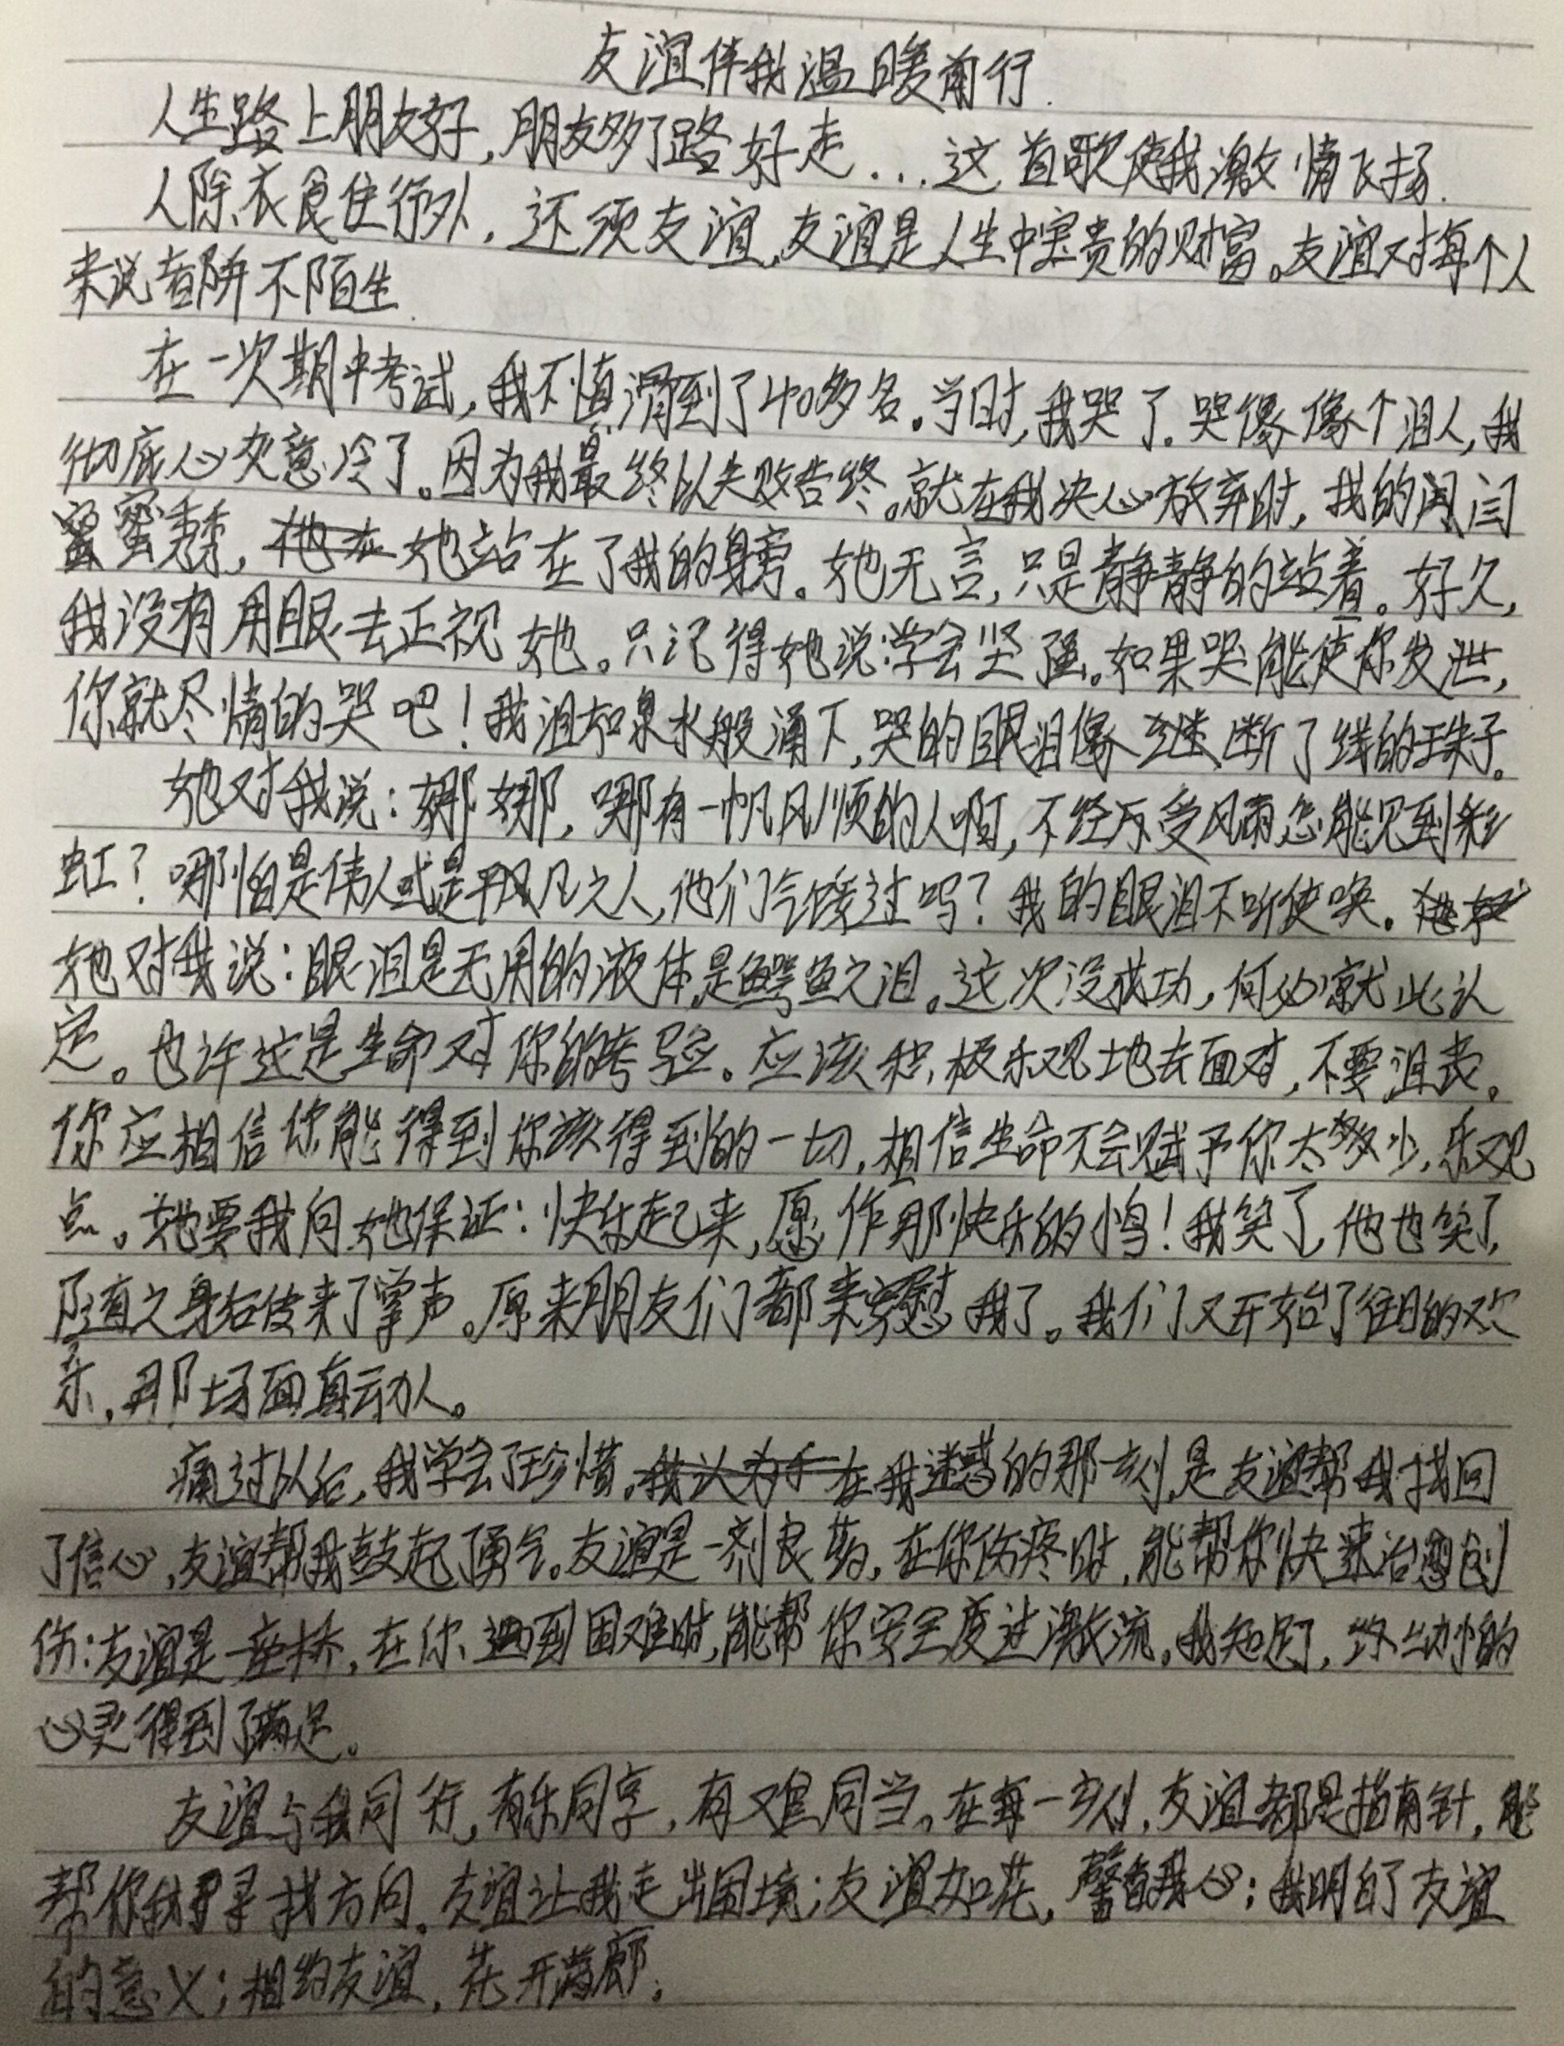 友谊伴我温暖前行.
人生路上朋友好,朋友多了路好走...这首歌使我激情飞扬.
人除衣食住行外,还须友谊,友谊是人生中宝贵的财富。友谊对每个人
来说都并不陌生.
在一次期中考试,我不慎滑到了40多名。当时,我哭了。哭像像个泪人,我
彻底心灰意冷了。因为我最终以失败告终。就在我决心放弃时,我的闺
蜜秀秀,她站在了我的身旁。她无言,只是静静的站着。好久,
我没有用眼去正视她。只记得她说:学会坚强。如果哭能使你发泄,
你就尽情的哭吧!我泪如泉水般涌下,哭的眼泪像断了线的珠子。
她对我说:娜娜,哪有一帆风顺的人啊,不经历受风雨怎能见到彩
虹?哪怕是伟人或是平凡之人,他们气馁过吗?我的眼泪不听使唤。
她对我说:眼泪是无用的液体,是鳄鱼之泪。这次没成功,何必就此认
定。也许这是生命对你的考验。应该积极乐观地去面对,不要沮丧。
你应相信你能得到你该得到的一切,相信生命不会赋予你太多少,乐观
点。她要我向她保证:快乐起来,愿作那快乐的小鸟!我笑了,他也笑了,
随之身后传来了掌声。原来朋友们都来安慰我了。我们又开始了往日的欢
乐,那场面真动人。
痛过以后,我学会了珍惜。在我迷惑的那一刻,是友谊帮我找回
了信心,友谊帮我鼓起了勇气。友谊是一剂良药,在你伤疼时,能帮你快来治愈创
伤:友谊是一座桥,在你遇到困难时,能帮你安全度过激流。我知足了,幼小的
心灵得到了满足。
友谊与我同行,有乐同享,有难同当。在每一刻,友谊都是指南针,能
帮你我寻找方向。友谊让我走出困境;友谊如花,馨香我心;我明白了友谊
的意义;相约友谊,花开满廊。